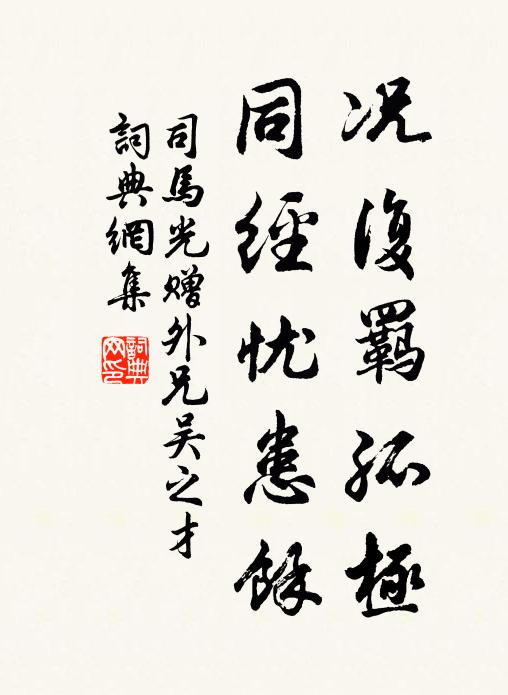 况復羁孤極
同經忧患餘
司馬光赠外兄吴之才
詞典網集
詞典
网印